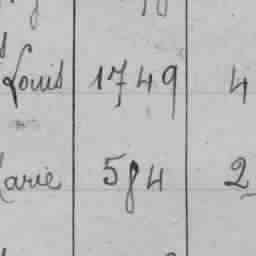 Louis 1749 4
arie 584 2